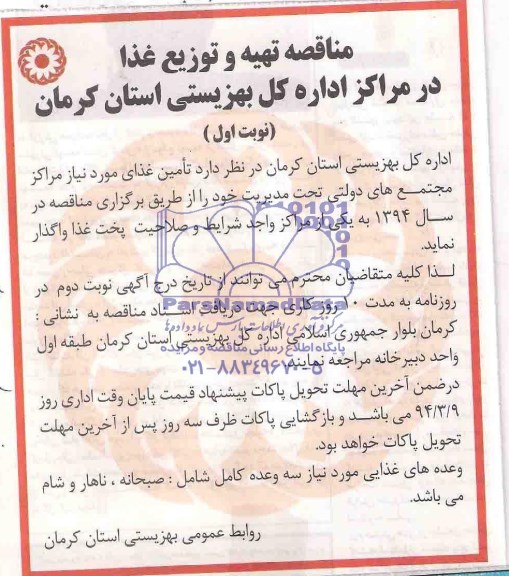 مناقصه تهیه و توزیع غذا
در مراکز اداره کل بهزیستی استان کرمان
(نوبت اول)
اداره کل بهزیستی استان کرمان در نظر دارد تأمین غذای مورد نیاز مراکز
مجتمع های دولتی تحت مدیریت خود را از طریق برگزاری مناقصه در
سال ۱۳۹۴ به یکی از مراکز واجد شرایط و صلاحیت پخت غذا واگذار
نماید.
لذا کلیه متقاضیان محترم می توانند از تاریخ درج آگهی نوبت دوم در
روزنامه به مدت ۱۰ روز کاری جهت دریافت اسناد مناقصه به نشانی :
کرمان بلوار جمهوری اسلامی اداره کل بهزیستی استان کرمان طبقه اول
واحد دبیرخانه مراجعه نمایند.
درضمن آخرین مهلت تحویل پاکات پیشنهاد قیمت پایان وقت اداری روز
۹۴/۳/۹ می باشد و بازگشایی پاکات ظرف سه روز پس از آخرین مهلت
تحویل پاکات خواهد بود.
وعده های غذایی مورد نیاز سه وعده کامل شامل : صبحانه ، ناهار و شام
می باشد.
روابط عمومی بهزیستی استان کرمان
ParsNamadData
پایگاه اطلاع رسانی مناقصه و مزایده
۰۲۱-۸۸۳۴۹۶۷۰-۵